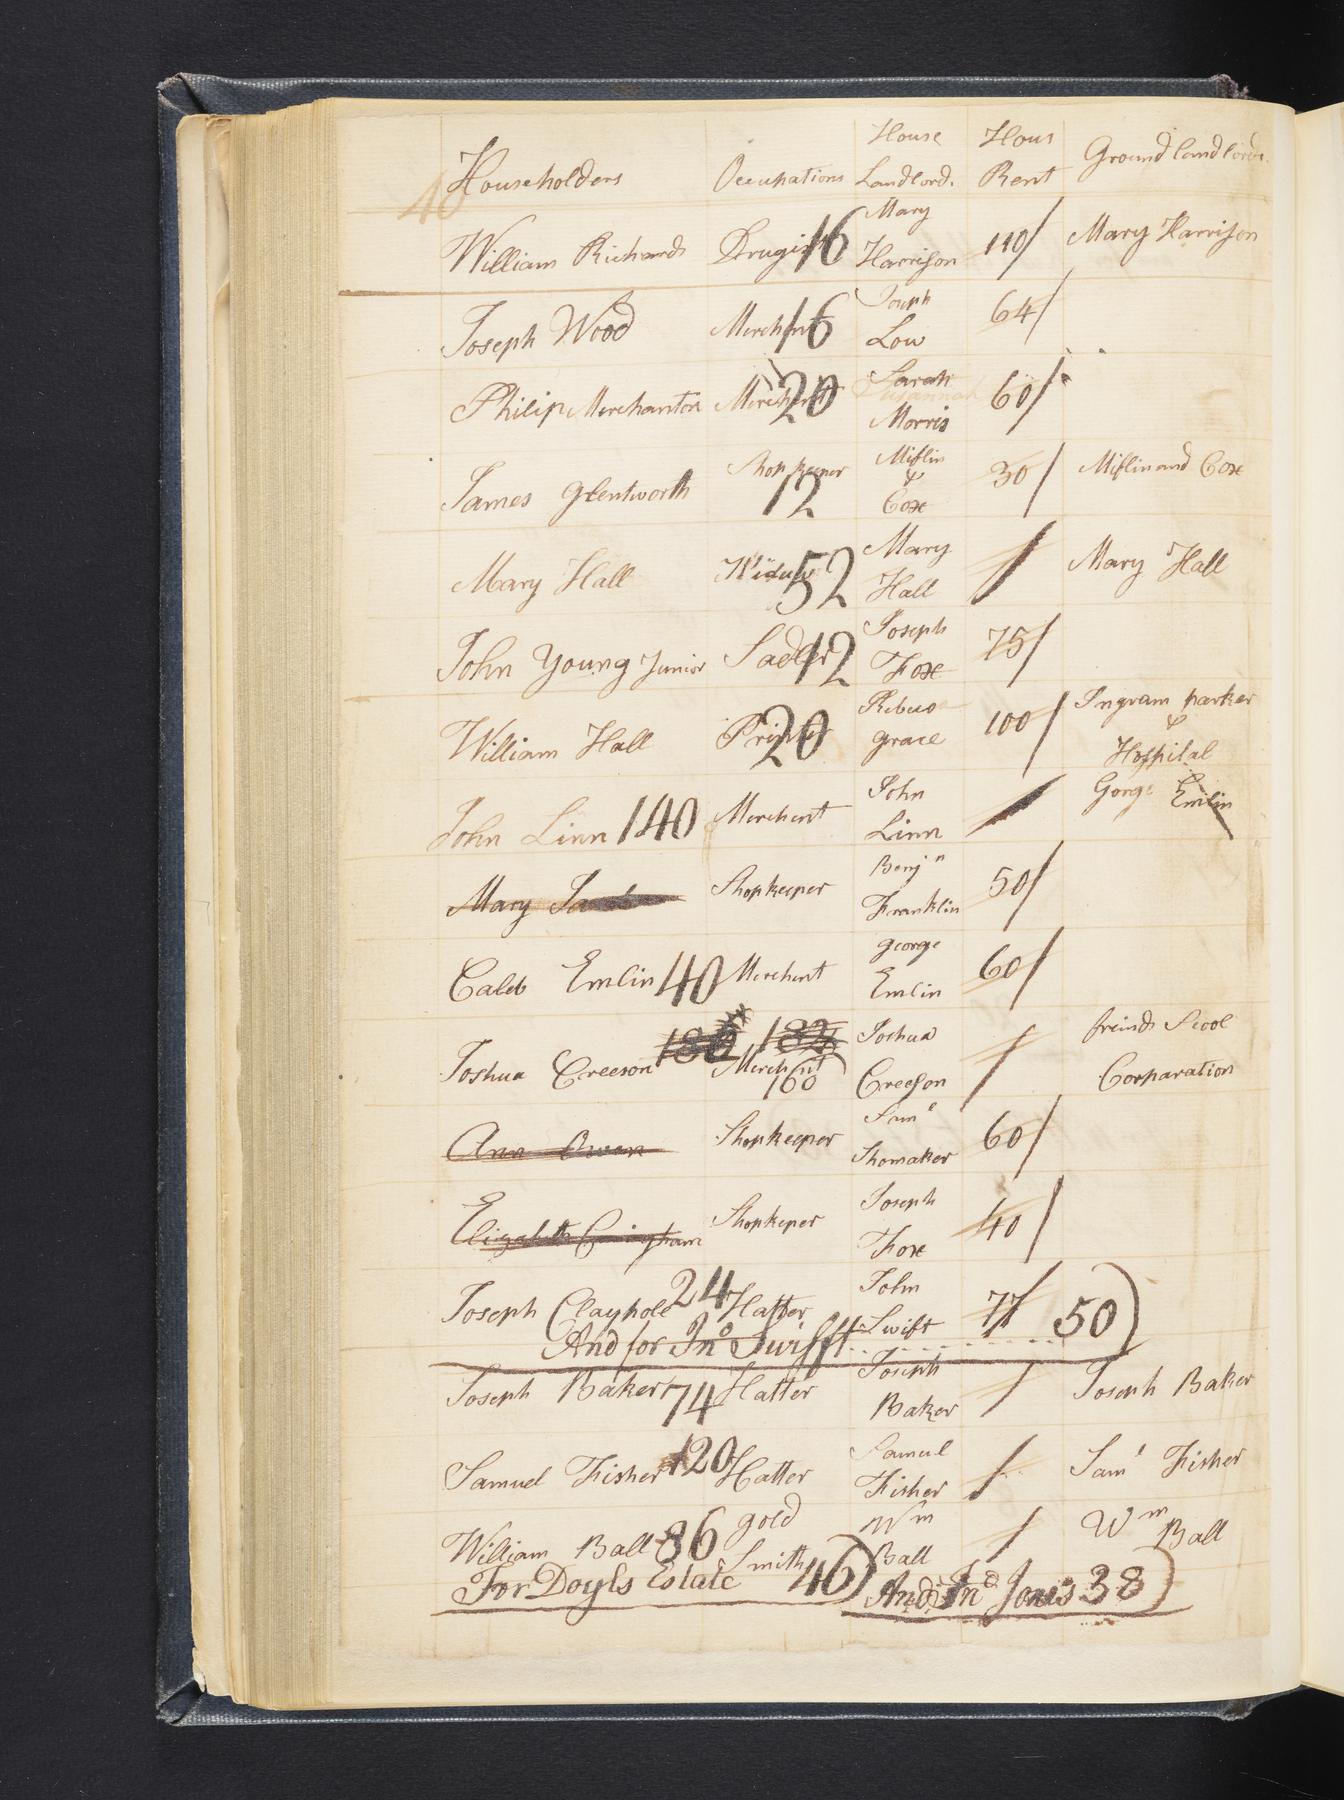 40 Householders Occupations House Landlord. Hous Rent Ground landlords
William Richards Drugist 16 Mary Harrison 110/ Mary Harrison
Joseph Wood Merchant 16 Joseph Low 64/
Philip Merchantor Merchant 20 Sarah Susannah Morris 60/
James Glentworth Shopkeeper 12 Miflin & Coxe 30/ Miflin and Coxe
Mary Hall Widow 52 Mary Hall / Mary Hall
John Young Junior Sadler 12 Joseph Foxe 75/
William Hall Printer 20 Grace 100/ Ingram parker & Hospital
John Linn 140 Merchent John Linn / Gorge Emlin
Mary Shopkeeper Benjn Franklin 50/
Caleb Emlin 40 Merchent george Emlin 60/
Joshua Creeson 182 Merchent 160 Joshua Creeson / freinds Scool Corparation
Ann Owen Shopkeeper Saml Shomaker 60/
Elizabeth Shopkeper Joseph Foxe 40/
Joseph Claypole 24 Hatter John Swift 77/ 50)
And for Jno Swifft
Joseph Baker 74 Hatter Joseph Baker / Joseph Baker
Samuel Fisher 120 Hatter Samuel Fisher / Saml Fisher
William Ball 86 gold Smith Wm Ball / Wm Ball
For Doyls Estate 46) And Jno Jones 38)